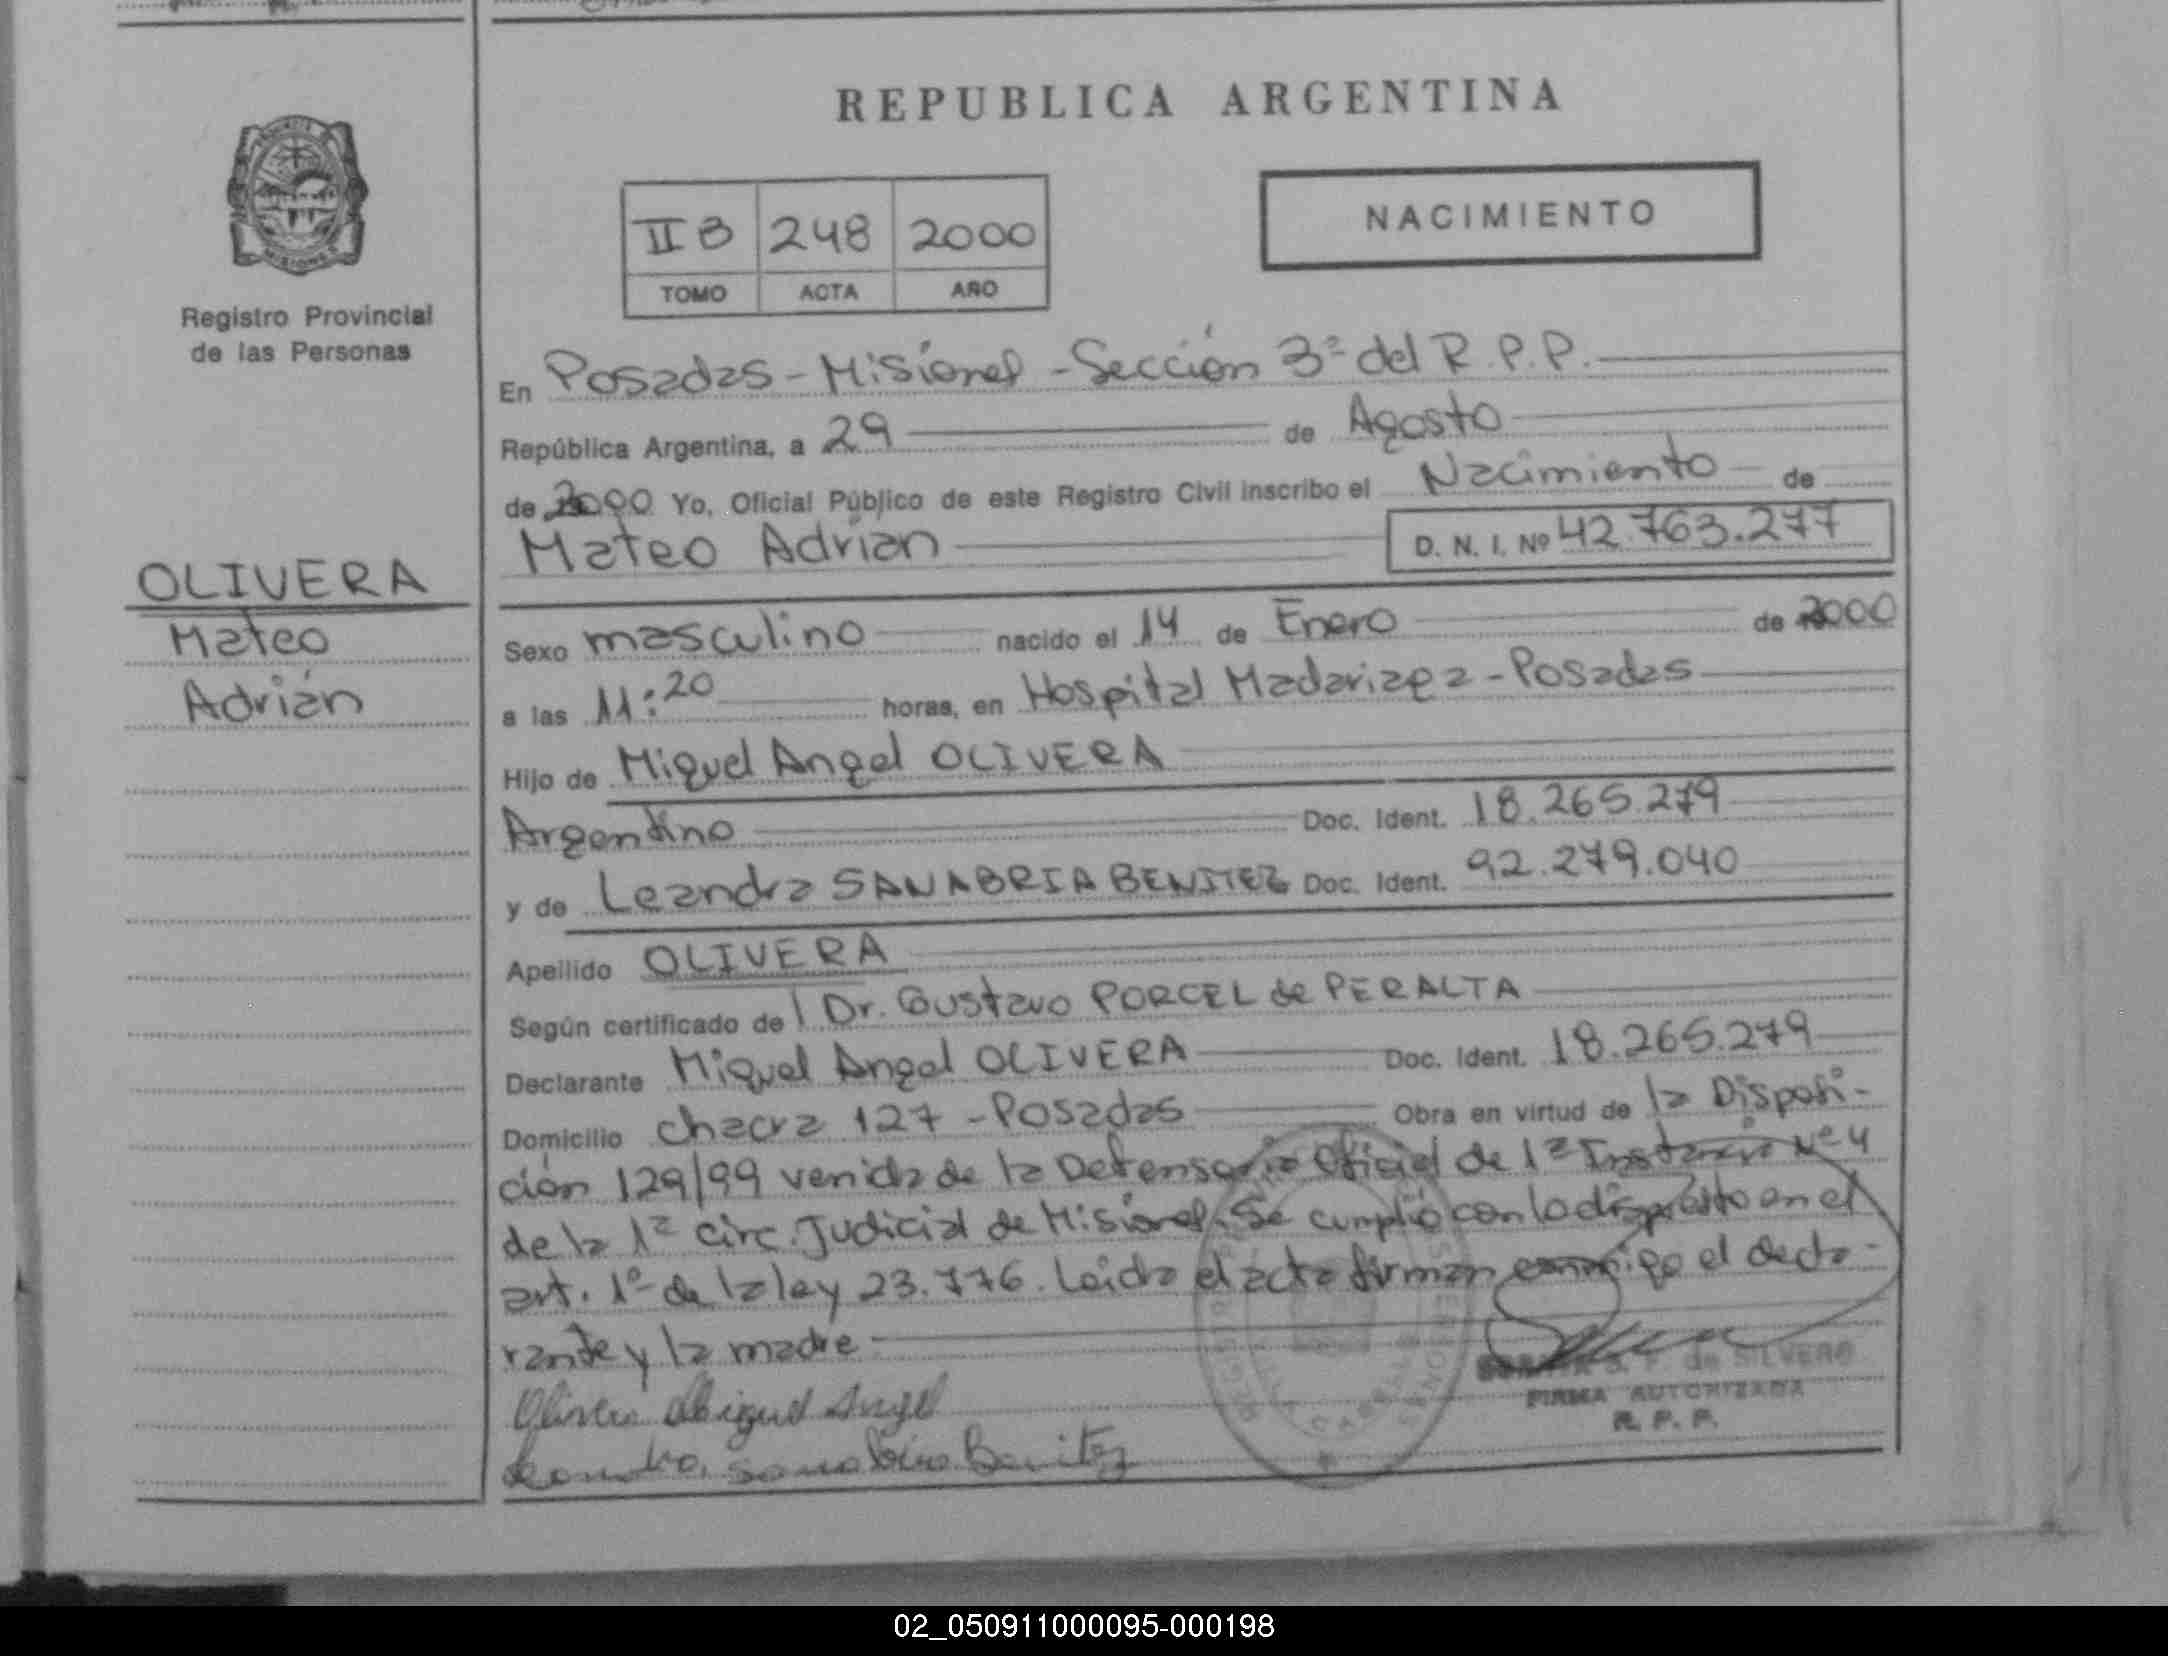 REPUBLICA ARGENTINA
NACIMIENTO
II B 248 2000
TOMO ACTA AÑO
Registro Provincial
de las Personas
OLIVERA
Mateo
Adrián
En Posadas - Misiones - Sección 3ª del R.P.P.
República Argentina, a 29 de Agosto
de 2000 Yo, Oficial Público de este Registro Civil inscribo el Nacimiento de
Mateo Adrián D. N. I. Nº 42.763.277
Sexo masculino nacido el 14 de Enero de 2000
a las 11:20 horas, en Hospital Madariaga - Posadas
Hijo de Miguel Angel OLIVERA
Argentino Doc. Ident. 18.265.279
y de Leandra SANABRIA BENITEZ Doc. Ident. 92.279.040
Apellido OLIVERA
Según certificado de l Dr. Gustavo PORCEL de PERALTA
Declarante Miguel Angel OLIVERA Doc. Ident. 18.265.279
Domicilio chacra 127 - Posadas Obra en virtud de la Disposi-
ción 129/99 venida de la Defensoría Oficial de 1ª Instancia Nº 4
de la 1ª circ. Judicial de Misiones. Se cumplió con lo dispuesto en el
art. 1º de la ley 23.776. Leída el acta firman conmigo el decla-
rante y la madre
Olivera Miguel Angel
Leandra Sanabria Benitez
de SILVERO
FIRMA AUTORIZADA
R. P. P.
02_050911000095-000198